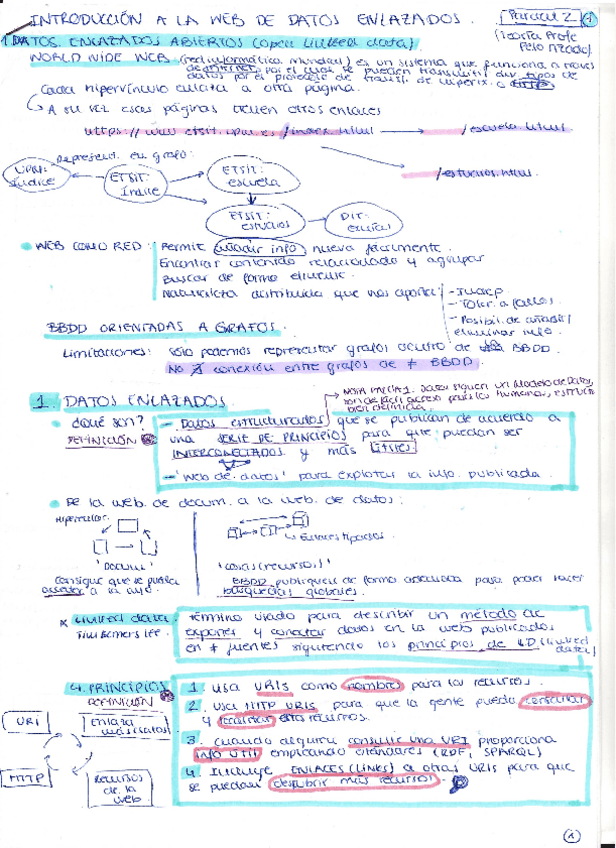 INTRODUCCIÓN A LA WEB DE DATOS ENLAZADOS.
Parcial 2
1
(Teoría Profe
1 DATOS ENLAZADOS ABIERTOS (open linked data)
WORLD WIDE WEB (red informática mundial) es un sistema que funciona a través
de internet, por el cual se pueden transmitir div. tipos de
datos por el protocolo de transf. de hiperex. o HTTP
Cada hipervínculo enlaza a otra página.
A su vez esas páginas tienen otros enlaces
https://www.etsit.upm.es/index.html
/escuela.html
/estudios.html
Represent. en grafo:
UPM: índice
ETSIT: índice
ETSIT: escuela
ETSIT: estudios
DIT:
WEB COMO RED:
Permite añadir info nueva fácilmente.
Encontrar contenido relacionado y agrupar
Buscar de forma eficiente.
Naturaleza distribuida que nos aporta:
- Toler. a fallos.
- Posibil. de añadir/
eliminar info.
BBDD ORIENTADAS A GRAFOS.
Limitaciones: Sólo podemos representar grafos dentro de BBDD.
NO ∄ conexión entre grafos de ≠ BBDD
1. DATOS ENLAZADOS.
¿Qué son?
DEFINICIÓN
- Datos estructurados que se publican de acuerdo a
una SERIE DE PRINCIPIOS para que puedan ser
INTERCONECTADOS y más útiles.
- 'Web de datos' para explotar la info. publicada.
De la web de docum. a la web de datos:
Enlaces tipados.
'Docum.'
'cosas (recursos)'
Consigue que se pueda
acceder a la info.
BBDD publiquen de forma adecuada para poder hacer
búsquedas globales.
* Linked data.
Tim Berners Lee.
término usado para describir un método de
exponer y conectar datos en la web publicados
en ≠ fuentes siguiendo los principios de LD (linked
data)
4. PRINCIPIOS
DEFINICIÓN
1. Usa URIs como nombres para los recursos.
2. Usa HTTP URIs para que la gente pueda consultar
y localizar esos recursos.
3. Cuando alguien consulte una URI proporciona
INFO ÚTIL empleando estándares (RDF, SPARQL)
4. Incluye ENLACES (LINKS) a otras URIs para que
se puedan descubrir más recursos.
URI
Enlaza
HTTP
Recursos
de la
web
1